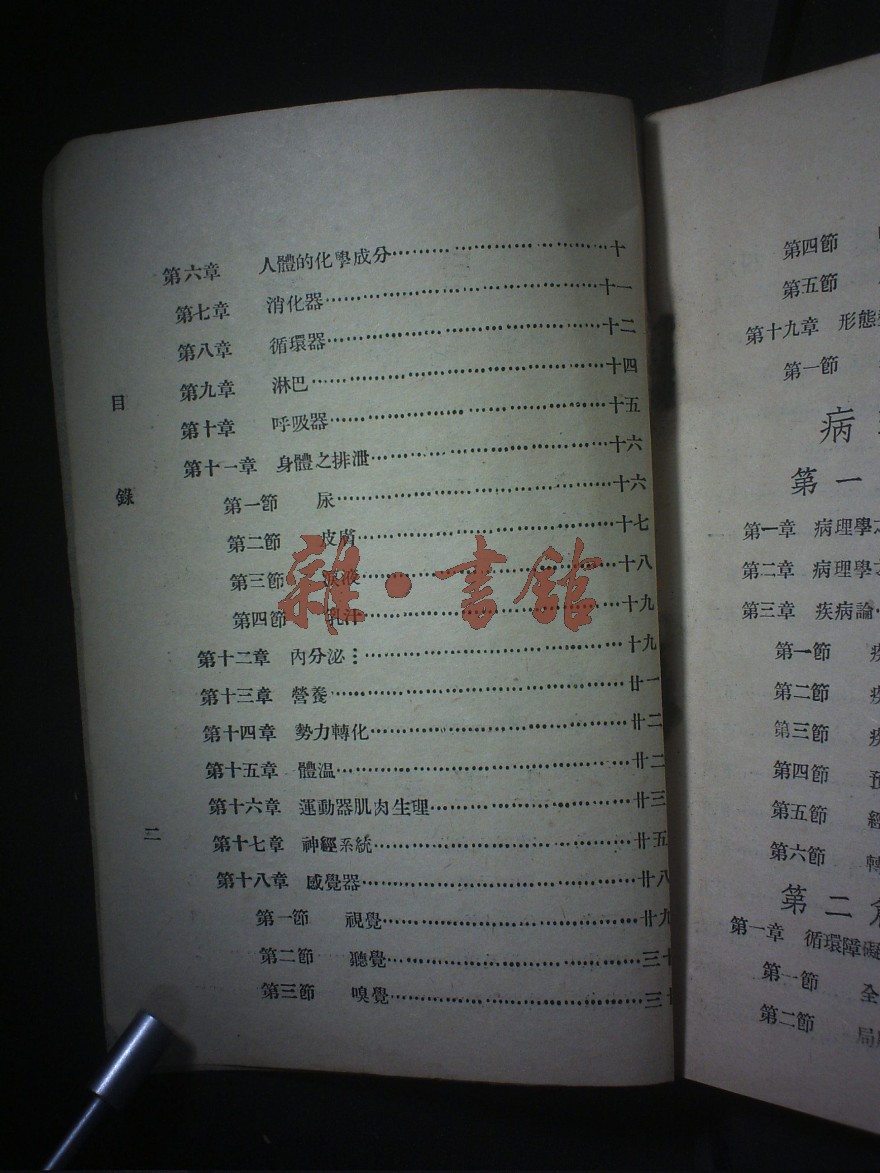 第六章 人體的化學成分………………………十
第七章 消化器………………………十一
第八章 循環器………………………十二
第九章 淋巴………………………十四
第十章 呼吸器………………………十五
第十一章 身體之排泄………………………十六
第一節 尿………………………十六
第二節 皮膚………………………十七
第三節 淚液………………………十八
第四節 乳汁………………………十九
第十二章 內分泌………………………十九
第十三章 營養………………………廿一
第十四章 勢力轉化………………………廿二
第十五章 體温………………………廿二
第十六章 運動器肌肉生理………………………廿三
第十七章 神經系統………………………廿五
第十八章 感覺器………………………廿八
第一節 視覺………………………廿九
第二節 聽覺………………………三十
第三節 嗅覺………………………三十
目錄
二
雜·書館
第四節
第五節
第十九章 形態
第一節
病
第一
第一章 病理學之
第二章 病理學之
第三章 疾病論
第一節
第二節
第三節
第四節 預
第五節 經
第六節 轉
第二
第一章 循環障礙
第一節 全
第二節 局